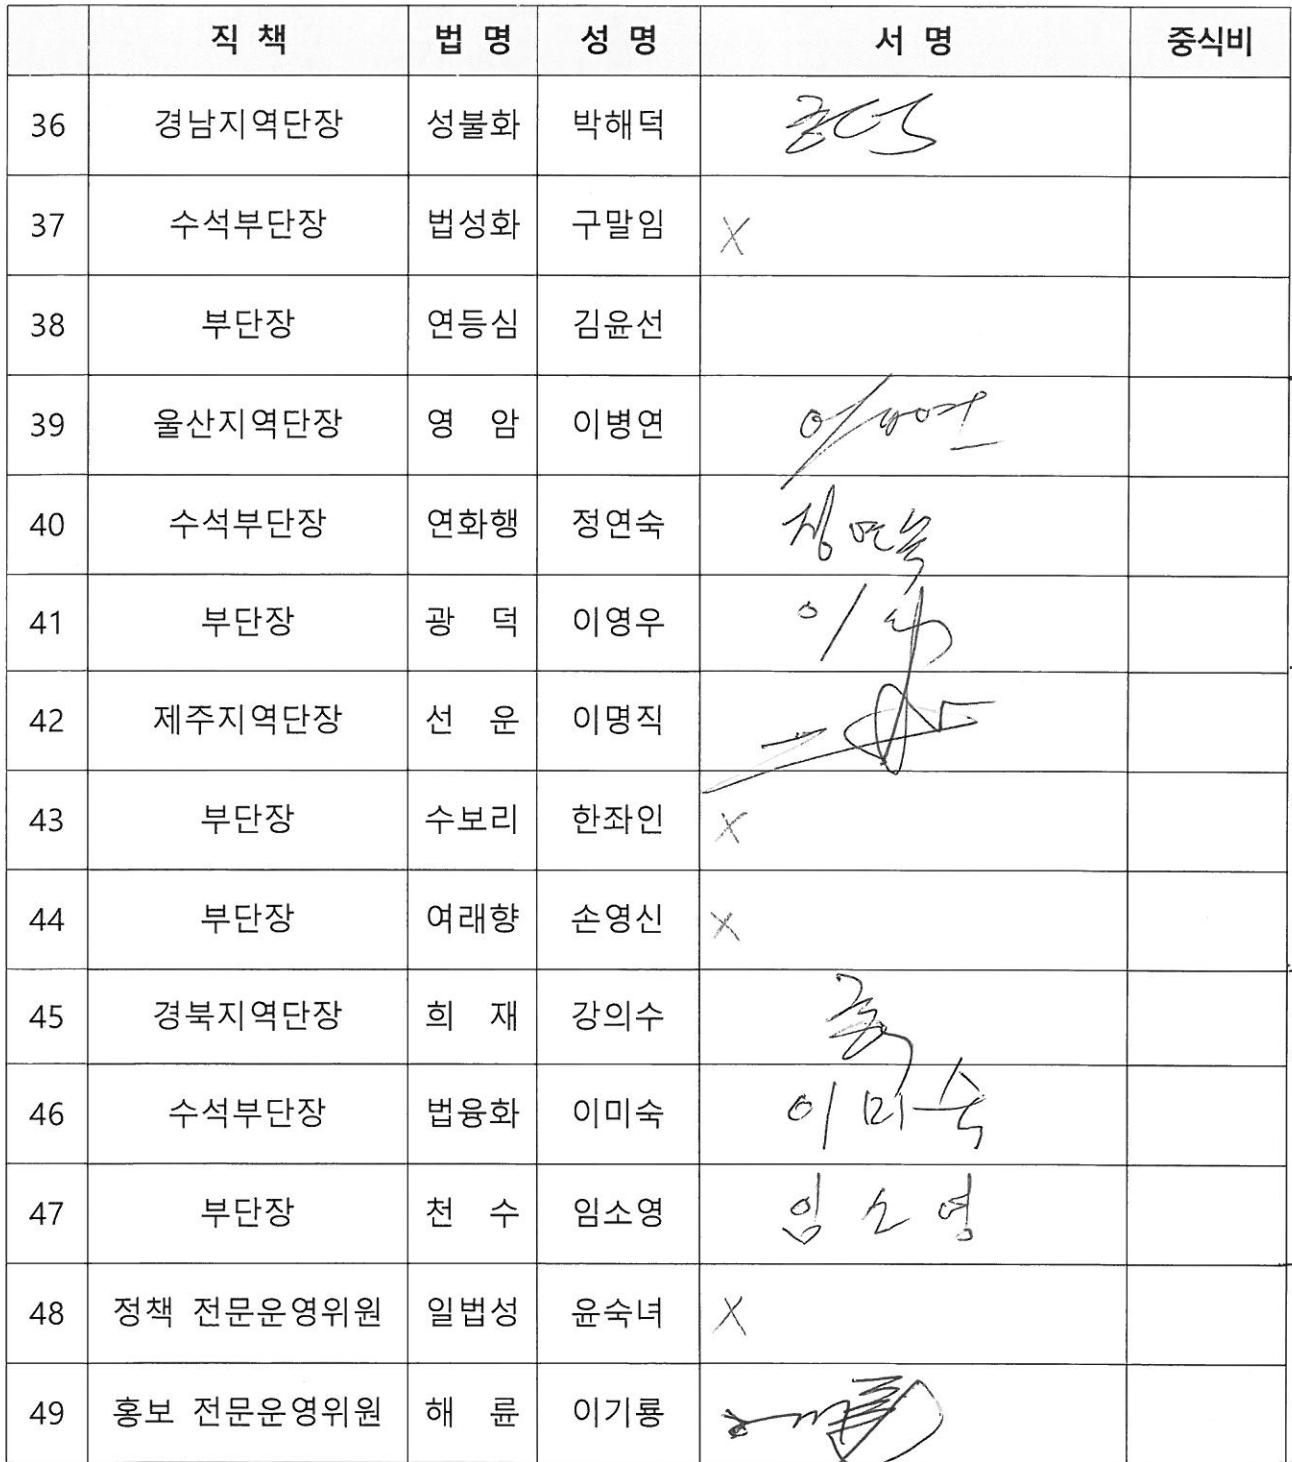 직 책 법 명 성 명 서 명 중식비
36 경남지역단장 성불화 박해덕
37 수석부단장 법성화 구말임 X
38 부단장 연등심 김윤선
39 울산지역단장 영 암 이병연 이병연
40 수석부단장 연화행 정연숙 정연숙
41 부단장 광 덕 이영우
42 제주지역단장 선 운 이명직
43 부단장 수보리 한좌인 X
44 부단장 여래향 손영신 X
45 경북지역단장 희 재 강의수
46 수석부단장 법융화 이미숙 이미숙
47 부단장 천 수 임소영 임소영
48 정책 전문운영위원 일법성 윤숙녀 X
49 홍보 전문운영위원 해 륜 이기룡